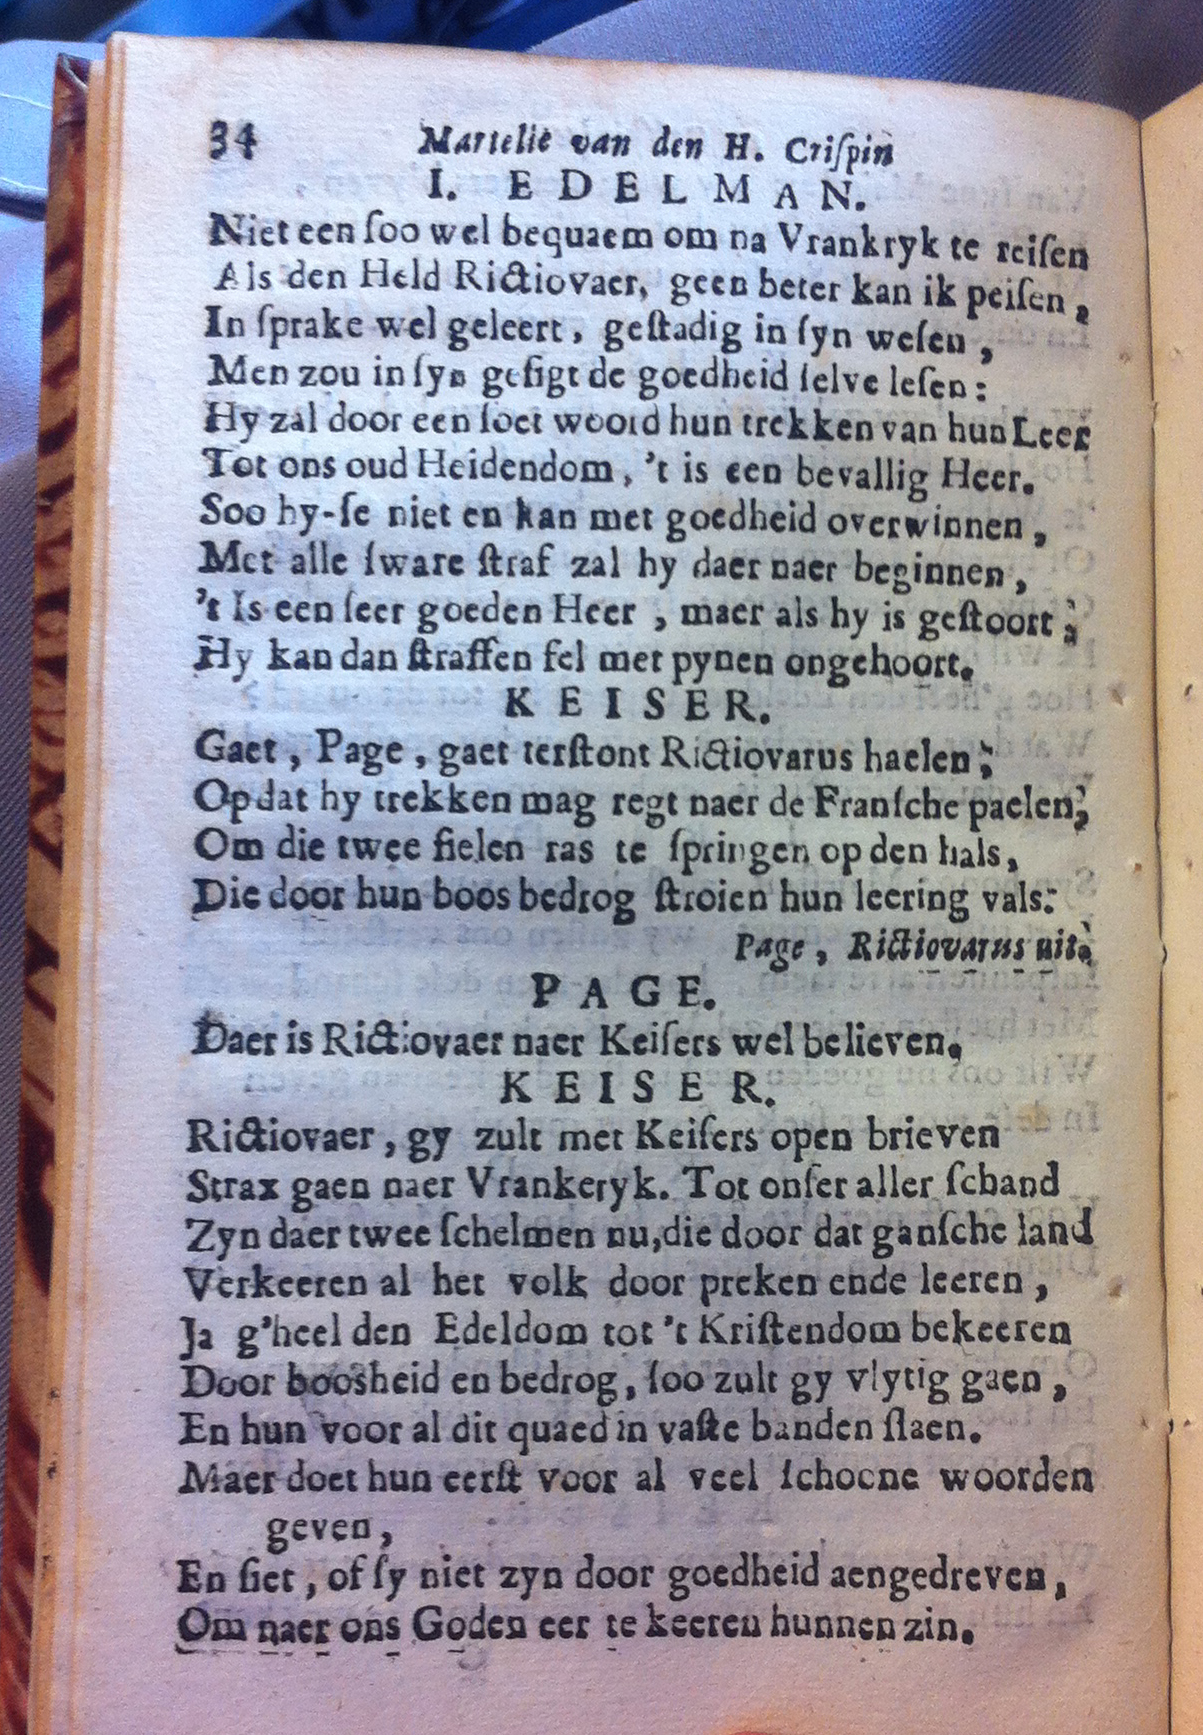 34 Martelie van den H. Criſpin
I. EDELMAN.
Niet een ſoo wel bequaem om na Vrankryk te reiſen
Als den Held Rictiovaer, geen beter kan ik peiſen,
In ſprake wel geleert, geſtadig in ſyn weſen,
Men zou in ſyn geſigt de goedheid ſelve leſen:
Hy zal door een ſoet woord hun trekken van hun Leer
Tot ons oud Heidendom, 't is een bevallig Heer.
Soo hy-ſe niet en kan met goedheid overwinnen,
Met alle ſware ſtraf zal hy daer naer beginnen,
't Is een ſeer goeden Heer, maer als hy is geſtoort;
Hy kan dan ſtraffen fel met pynen ongehoort.
KEISER.
Gaet, Page, gaet terſtont Rictiovarus haelen;
Opdat hy trekken mag regt naer de Franſche paelen;
Om die twee fielen ras te ſpringen op den hals,
Die door hun boos bedrog ſtroien hun leering vals:
Page, Rictiovarus uit.
PAGE.
Daer is Rictiovaer naer Keiſers wel believen.
KEISER.
Rictiovaer, gy zult met Keiſers open brieven
Strax gaen naer Vrankeryk. Tot onſer aller ſchand
Zyn daer twee ſchelmen nu,die door dat ganſche land
Verkeeren al het volk door preken ende leeren,
Ja g'heel den Edeldom tot 't Kriſtendom bekeeren
Door boosheid en bedrog, ſoo zult gy vlytig gaen,
En hun voor al dit quaed in vaſte banden ſlaen.
Maer doet hun eerſt voor al veel ſchoone woorden
geven,
En ſiet, of ſy niet zyn door goedheid aengedreven,
Om naer ons Goden eer te keeren hunnen zin.